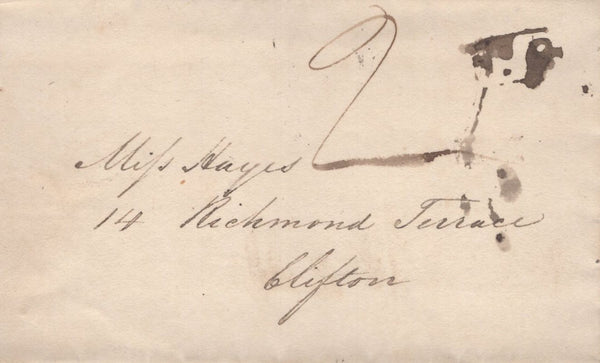 2
Miſs Hayes
14 Richmond Terrace
Clifton